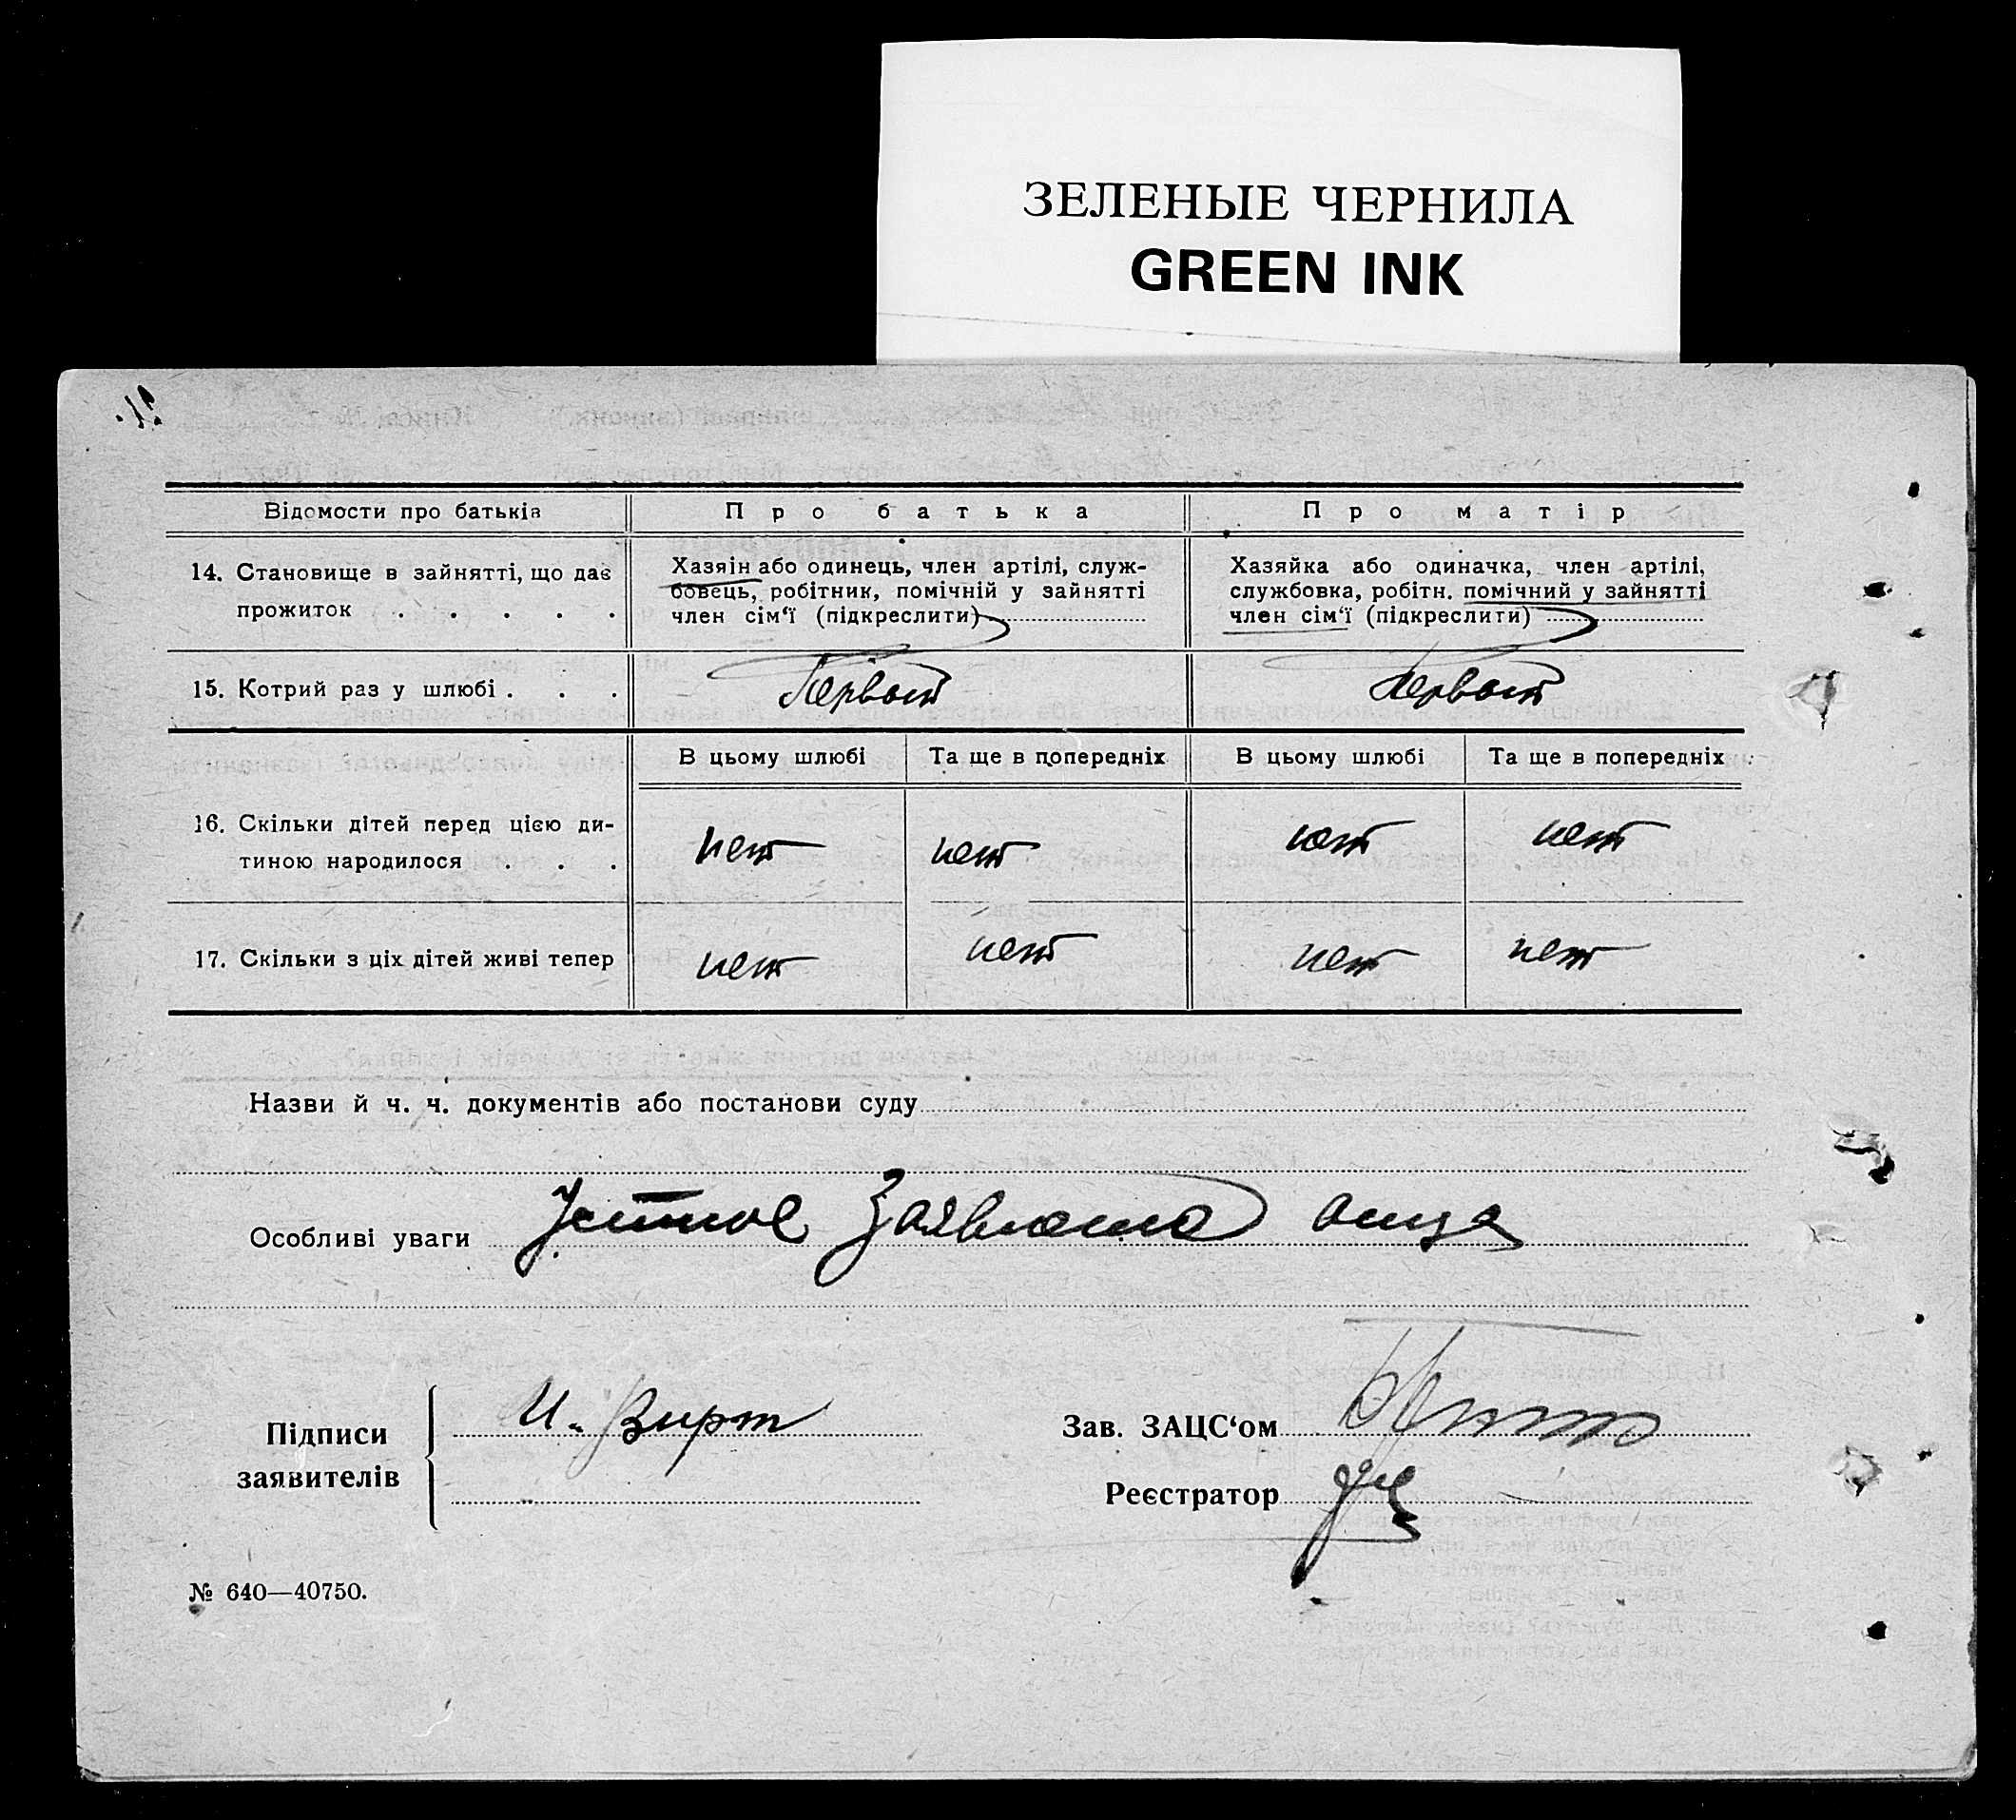 ЗЕЛЕНЫЕ ЧЕРНИЛА
GREEN INK
Відомости про батьків
Про батька
Про матір
14. Становище в зайнятті, що дає
прожиток . . . . .
Хазяін або одинець, член артілі, служ-
бовець, робітник, помічній у зайнятті
член сім‘ї (підкреслити)
Хазяйка або одиначка, член артілі,
службовка, робітн. помічний у зайнятті
член сім‘ї (підкреслити)
15. Котрий раз у шлюбі . . .
Первый
Первый
В цьому шлюбі
Та ще в попередніх
В цьому шлюбі
Та ще в попередніх
16. Скільки дітей перед цією ди-
тиною народилося . . .
нет
нет
нет
нет
17. Скільки з ціх дітей живі тепер
нет
нет
нет
нет
Назви й ч. ч. документів або постанови суду
Особливі уваги Устное отца
Підписи
заявителів
И. Вирт
Зав. ЗАЦС‘ом
Реєстратор
№ 640—40750.